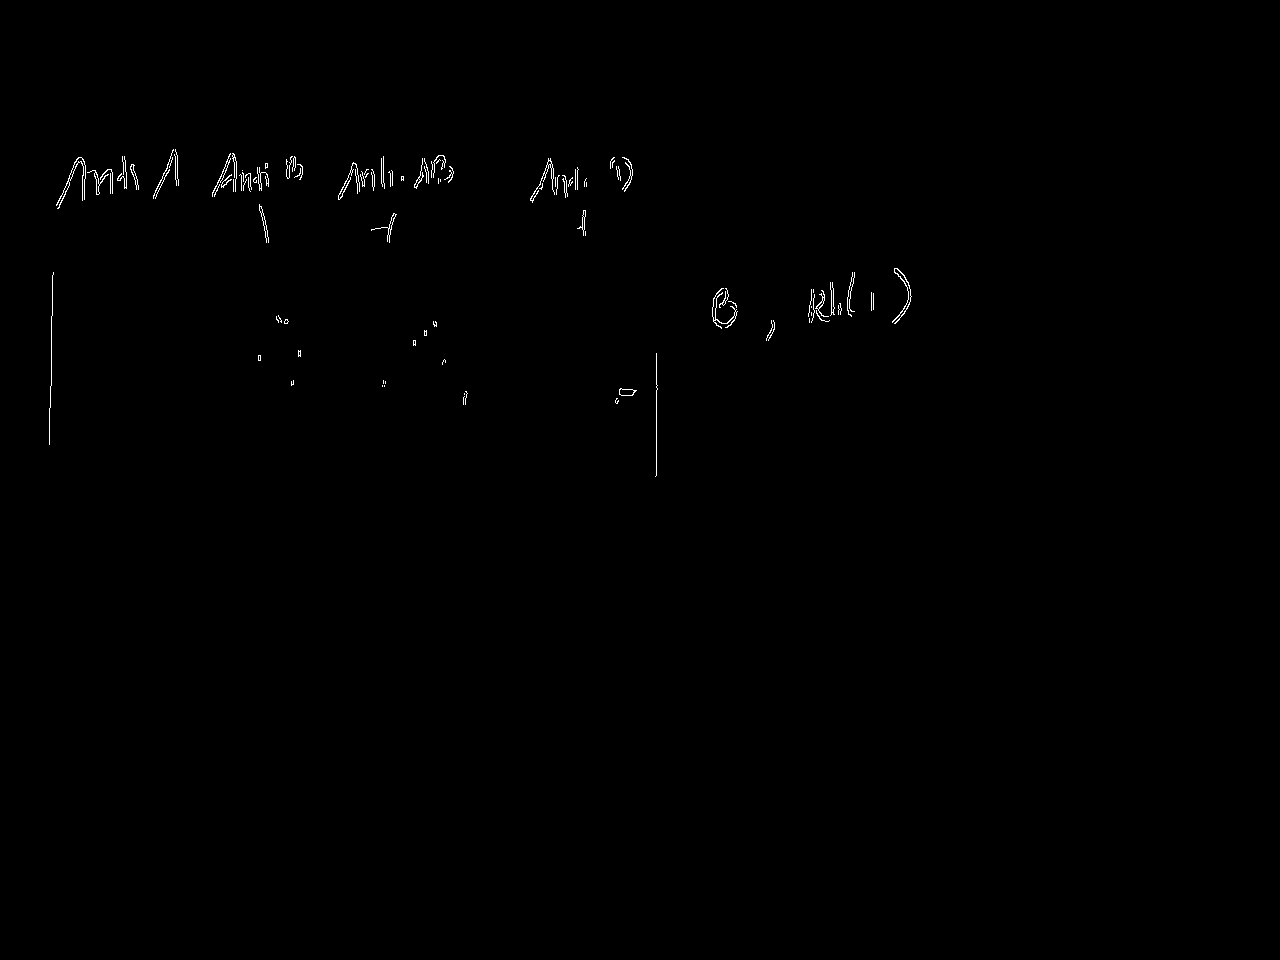 Anti A Anti B Anti AB Anti D
B, Rh( )